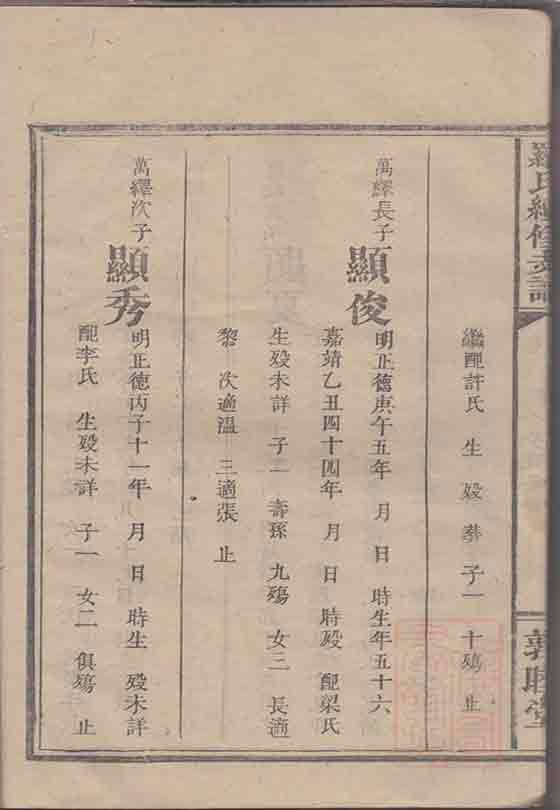 羅氏續修支譜
敦睦堂
繼配許氏 生 殁 葬 子一 十殤 止
萬繹長子 顯俊 明正德庚午五年 月 日 時生年五十六
嘉靖乙丑四十四年 月 日 時殁 配梁氏
生殁未詳 子一 壽孫 九殤 女三 長適
黎 次適溫 三適張 止
萬繹次子 顯秀 明正德丙子十一年 月 日 時生 殁未詳
配李氏 生殁未詳 子一 女二 俱殤 止